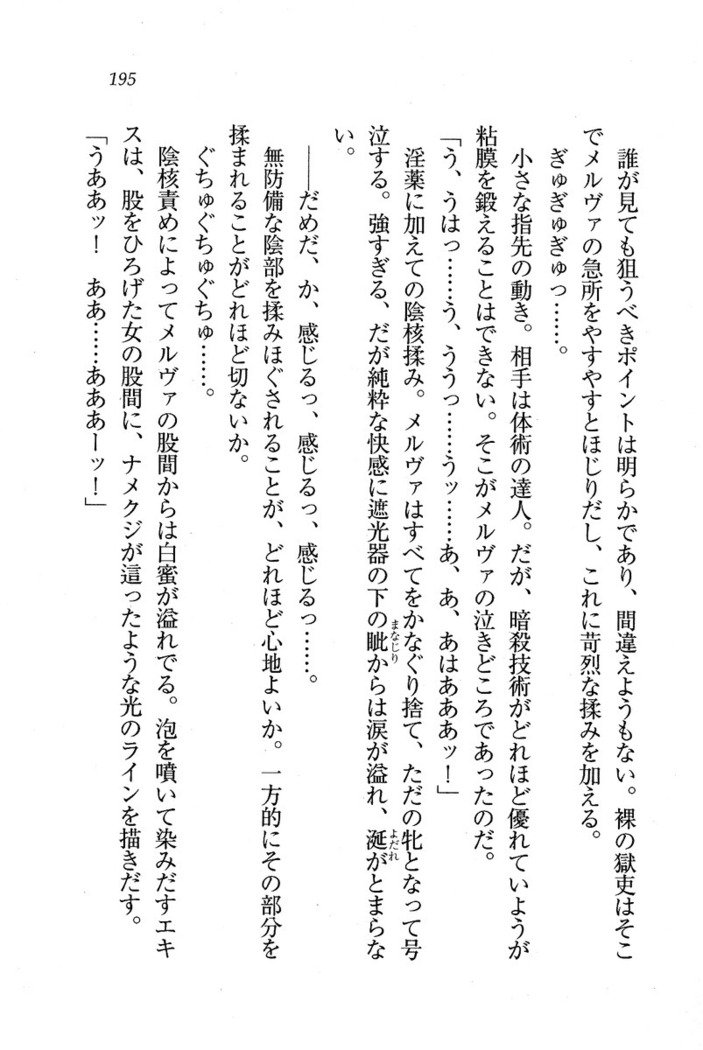 195
誰が見ても狙うべきポイントは明らかであり、間違えようもない。裸の獄吏はそこ
でメルヴァの急所をやすやすとほじりだし、これに苛烈な揉みを加える。
ぎゅぎゅぎゅっ……。
小さな指先の動き。相手は体術の達人。だが、暗殺技術がどれほど優れていようが
粘膜を鍛えることはできない。そこがメルヴァの泣きどころであったのだ。
「う、うはっ……う、ううっ……うッ……あ、あ、あはああぁッ！」
淫薬に加えての陰核揉み。メルヴァはすべてをかなぐり捨て、ただの牝となって号
泣する。強すぎる、だが純粋な快感に遮光器の下の眦からは涙が溢れ、涎がとまらな
まなじり
よだれ
い。
――だめだ、か、感じるっ、感じるっ、感じるっ……。
無防備な陰部を揉みほぐされることが、どれほど心地よいか。一方的にその部分を
揉まれることがどれほど切ないか。
ぐちゅぐちゅぐちゅ……。
陰核責めによってメルヴァの股間からは白蜜が溢れでる。泡を噴いて染みだすエキ
スは、股をひろげた女の股間に、ナメクジが這ったような光のラインを描きだす。
「うああッ！　ああ……あああーッ！」